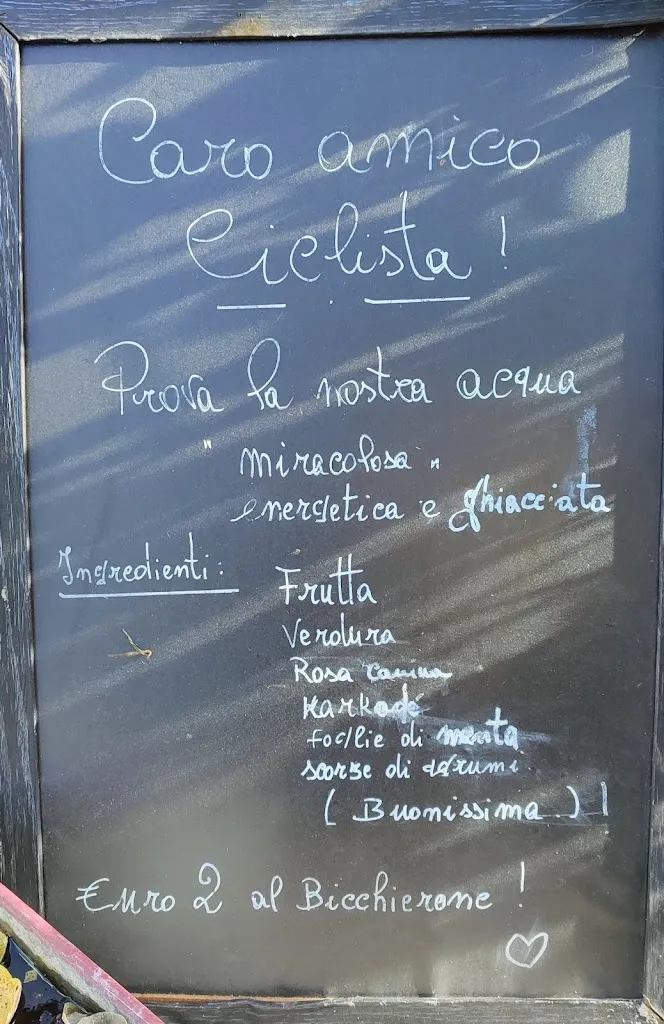 Caro amico
Ciclista!
Prova la nostra acqua
"miracolosa"
energetica e ghiacciata
Ingredienti:
Frutta
Verdura
Rosa canina
Karkadè
foglie di menta
scorze di agrumi
(Buonissima.)!
Euro 2 al Bicchierone!